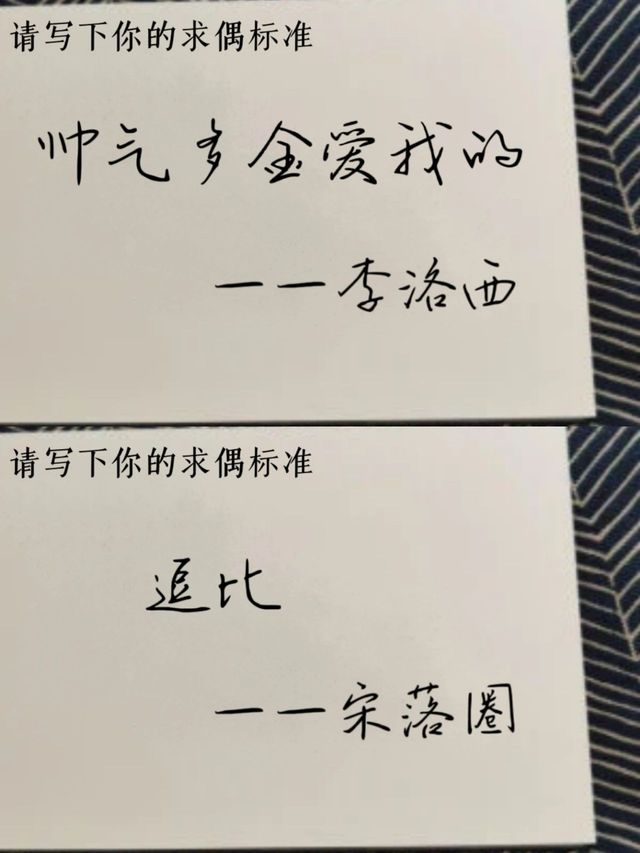 请写下你的求偶标准
帅气多金爱我的
——李洛西
请写下你的求偶标准
逗比
——宋落圈